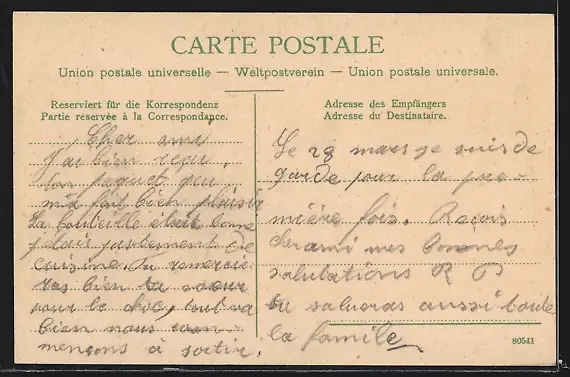 CARTE POSTALE
Union postale universelle — Weltpostverein — Union postale universale.
Reserviert für die Korrespondenz
Partie réservée à la Correspondance.
Cher ami
J'ai bien reçu
ton paquet qui
m'a fait bien plaisir
La bouteille etait bonne
j'etais justement de
cuisine. Tu remercie-
ras bien ta soeur
pour le choc, tout va
bien nous com-
mençons à sortir.
Adresse des Empfängers
Adresse du Destinataire.
Le 29 mars je suis de
garde pour la pre-
mière fois. Reçois
cher ami mes bonnes
salutations R P
tu salueras aussi toute
la famile
80541